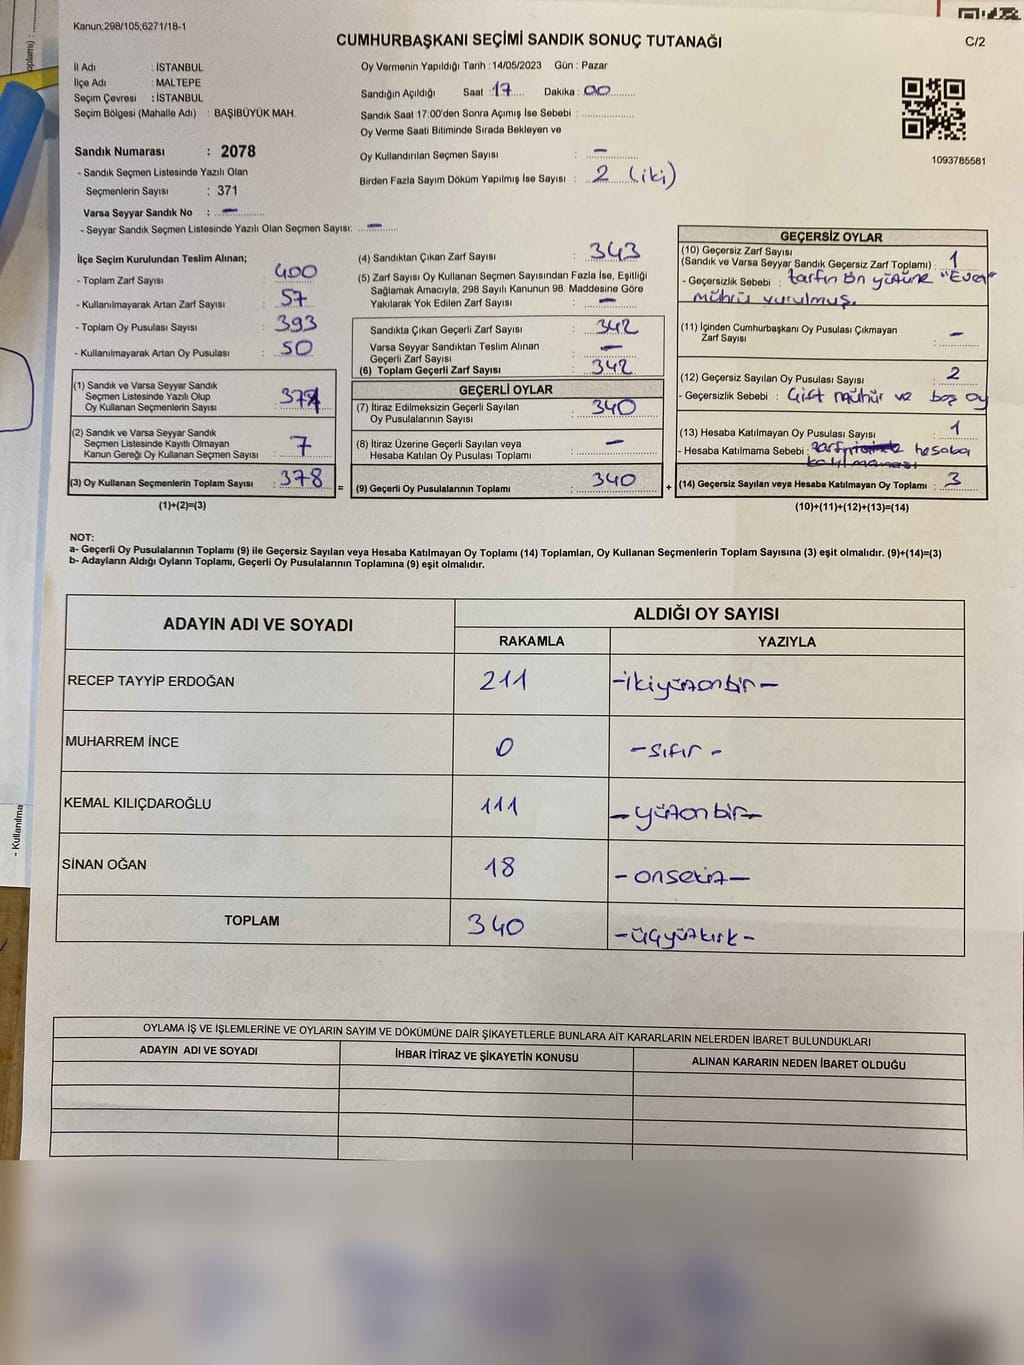 Kanun;298/105;6271/18-1
CUMHURBAŞKANI SEÇİMİ SANDIK SONUÇ TUTANAĞI
C/2
İl Adı : İSTANBUL
İlçe Adı : MALTEPE
Seçim Çevresi : İSTANBUL
Seçim Bölgesi (Mahalle Adı) : BAŞIBÜYÜK MAH.
Oy Vermenin Yapıldığı Tarih : 14/05/2023 Gün : Pazar
Sandığın Açıldığı Saat : 17 Dakika : 00
Sandık Saat 17:00'den Sonra Açımış İse Sebebi :
Oy Verme Saati Bitiminde Sırada Bekleyen ve
Oy Kullandırılan Seçmen Sayısı : —
Birden Fazla Sayım Döküm Yapılmış İse Sayısı : 2 (iki)
1093785581
Sandık Numarası : 2078
- Sandık Seçmen Listesinde Yazılı Olan
Seçmenlerin Sayısı : 371
Varsa Seyyar Sandık No : —
- Seyyar Sandık Seçmen Listesinde Yazılı Olan Seçmen Sayısı: —
İlçe Seçim Kurulundan Teslim Alınan;
- Toplam Zarf Sayısı : 400
- Kullanılmayarak Artan Zarf Sayısı : 57
- Toplam Oy Pusulası Sayısı : 393
- Kullanılmayarak Artan Oy Pusulası : 50
(1) Sandık ve Varsa Seyyar Sandık
Seçmen Listesinde Yazılı Olup
Oy Kullanan Seçmenlerin Sayısı : 371
(2) Sandık ve Varsa Seyyar Sandık
Seçmen Listesinde Kayıtlı Olmayan
Kanun Gereği Oy Kullanan Seçmen Sayısı : 7
(3) Oy Kullanan Seçmenlerin Toplam Sayısı : 378 =
(1)+(2)=(3)
(4) Sandıktan Çıkan Zarf Sayısı : 343
(5) Zarf Sayısı Oy Kullanan Seçmen Sayısından Fazla İse, Eşitliği
Sağlamak Amacıyla, 298 Sayılı Kanunun 98. Maddesine Göre
Yakılarak Yok Edilen Zarf Sayısı : —
Sandıkta Çıkan Geçerli Zarf Sayısı : 342
Varsa Seyyar Sandıktan Teslim Alınan
Geçerli Zarf Sayısı : —
(6) Toplam Geçerli Zarf Sayısı : 342
GEÇERLİ OYLAR
(7) İtiraz Edilmeksizin Geçerli Sayılan
Oy Pusulalarının Sayısı : 340
(8) İtiraz Üzerine Geçerli Sayılan veya
Hesaba Katılan Oy Pusulası Toplamı : —
(9) Geçerli Oy Pusulalarının Toplamı : 340 +
GEÇERSİZ OYLAR
(10) Geçersiz Zarf Sayısı
(Sandık ve Varsa Seyyar Sandık Geçersiz Zarf Toplamı) : 1
- Geçersizlik Sebebi : zarfın ön yüzüne "Evet"
mührü vurulmuş.
(11) İçinden Cumhurbaşkanı Oy Pusulası Çıkmayan
Zarf Sayısı : —
(12) Geçersiz Sayılan Oy Pusulası Sayısı : 2
- Geçersizlik Sebebi : Çift mühür ve boş oy
(13) Hesaba Katılmayan Oy Pusulası Sayısı : 1
- Hesaba Katılmama Sebebi : hesaba
katılmaması
(14) Geçersiz Sayılan veya Hesaba Katılmayan Oy Toplamı : 3
(10)+(11)+(12)+(13)=(14)
NOT:
a- Geçerli Oy Pusulalarının Toplamı (9) ile Geçersiz Sayılan veya Hesaba Katılmayan Oy Toplamı (14) Toplamları, Oy Kullanan Seçmenlerin Toplam Sayısına (3) eşit olmalıdır. (9)+(14)=(3)
b- Adayların Aldığı Oyların Toplamı, Geçerli Oy Pusulalarının Toplamına (9) eşit olmalıdır.
ADAYIN ADI VE SOYADI
ALDIĞI OY SAYISI
RAKAMLA YAZIYLA
RECEP TAYYİP ERDOĞAN 211 -ikiyüzonbir-
MUHARREM İNCE 0 -sıfır-
KEMAL KILIÇDAROĞLU 111 -yüzonbir-
SİNAN OĞAN 18 -onsekiz-
TOPLAM 340 -üçyüzkırk-
OYLAMA İŞ VE İŞLEMLERİNE VE OYLARIN SAYIM VE DÖKÜMÜNE DAİR ŞİKAYETLERLE BUNLARA AİT KARARLARIN NELERDEN İBARET BULUNDUKLARI
ADAYIN ADI VE SOYADI İHBAR İTİRAZ VE ŞİKAYETİN KONUSU ALINAN KARARIN NEDEN İBARET OLDUĞU
- Kullanılma